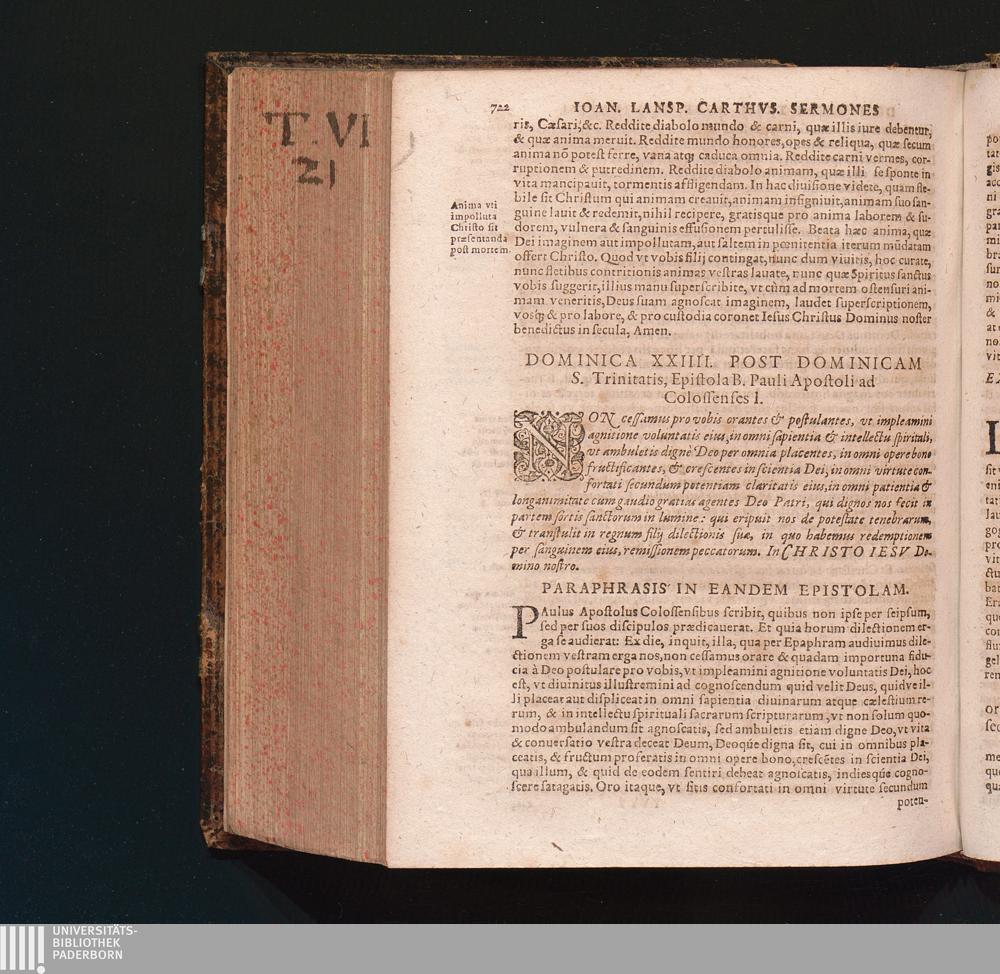 T. VI
21
722 IOAN. LANSP. CARTHVS. SERMONES
ris, Cæsari, &c. Reddite diabolo mundo & carni, quæ illis iure debentur,
& quæ anima meruit. Reddite mundo honores, opes & reliqua, quæ secum
anima nõ potest ferre, vana atq; caduca omnia. Reddite carni vermes, cor-
ruptionem & putredinem. Reddite diabolo animam, quæ illi se sponte in
vita mancipauit, tormentis affligendam. In hac diuisione videte, quam fle-
bile sit Christum qui animam creauit, animam insigniuit, animam suo san-
guine lauit & redemit, nihil recipere, gratisque pro anima laborem & su-
dorem, vulnera & sanguinis effusionem pertulisse. Beata hæc anima, quæ
Dei imaginem aut impollutam, aut saltem in pœnitentia iterum mũdatam
offert Christo. Quod vt vobis filij contingat, nunc dum viuitis, hoc curate,
nunc fletibus contritionis animas vestras lauate, nunc quæ Spiritus sanctus
vobis suggerit, illius manu superscribite, vt cùm ad mortem ostensuri ani-
mam veneritis, Deus suam agnoscat imaginem, laudet superscriptionem,
vosq; & pro labore, & pro custodia coronet Iesus Christus Dominus noster
benedictus in secula, Amen.
Anima vti
impolluta
Christo sit
præsentanda
post mortem.
DOMINICA XXIIII. POST DOMINICAM
S. Trinitatis, Epistola B. Pauli Apostoli ad
Colossenses I.
NON cessamus pro vobis orantes & postulantes, vt impleamini
agnitione voluntatis eius, in omni sapientia & intellectu spiritali,
vt ambuletis digne Deo per omnia placentes, in omni opere bono
fructificantes, & crescentes in scientia Dei, in omni virtute con-
fortati secundum potentiam claritatis eius, in omni patientia &
longanimitate cum gaudio gratias agentes Deo Patri, qui dignos nos fecit in
partem sortis sanctorum in lumine: qui eripuit nos de potestate tenebrarum,
& transtulit in regnum filij dilectionis suæ, in quo habemus redemptionem
per sanguinem eius, remissionem peccatorum. In CHRISTO IESV Do-
mino nostro.
PARAPHRASIS IN EANDEM EPISTOLAM.
PAulus Apostolus Colossensibus scribit, quibus non ipse per seipsum,
sed per suos discipulos prædicauerat. Et quia horum dilectionem er-
ga se audierat: Ex die, inquit, illa, qua per Epaphram audiuimus dile-
ctionem vestram erga nos, non cessamus orare & quadam importuna fidu-
cia à Deo postulare pro vobis, vt impleamini agnitione voluntatis Dei, hoc
est, vt diuinitus illustremini ad cognoscendum quid velit Deus, quidve il-
li placeat aut displiceat in omni sapientia diuinarum atque cælestium re-
rum, & in intellectu spirituali sacrarum scripturarum, vt non solum quo-
modo ambulandum sit agnoscatis, sed ambuletis etiam digne Deo, vt vita
& conuersatio vestra deceat Deum, Deoque digna sit, cui in omnibus pla-
ceatis, & fructum proferatis in omni opere bono, crescẽtes in scientia Dei,
qua illum, & quid de eodem sentiri debeat agnoscatis, indiesque cogno-
scere satagatis. Oro itaque, vt sitis confortati in omni virtute secundum
poten-
UNIVERSITÄTS-
BIBLIOTHEK
PADERBORN